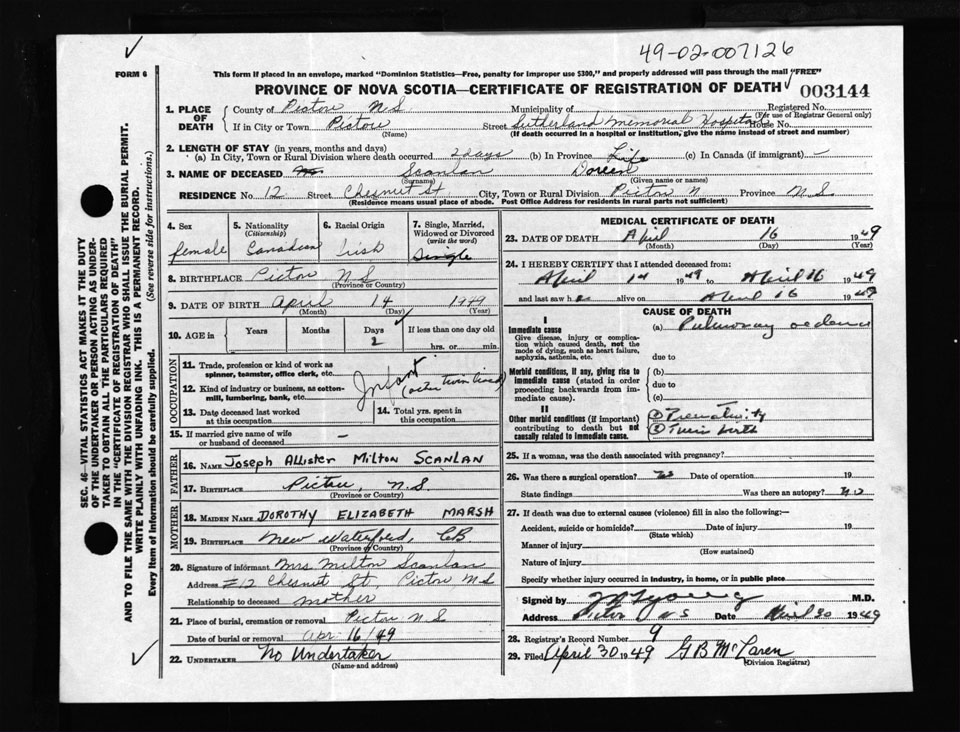 49-02-007126
FORM 6
This form if placed in an envelope, marked "Dominion Statistics—Free, penalty for improper use $300," and properly addressed will pass through the mail "FREE"
PROVINCE OF NOVA SCOTIA—CERTIFICATE OF REGISTRATION OF DEATH 003144
1. PLACE OF DEATH
County of Pictou N S Municipality of Registered No.
(For use of Registrar General only)
If in City or Town Pictou Street Sutherland Memorial Hospital House No.
(Name) (If death occurred in a hospital or institution, give the name instead of street and number)
2. LENGTH OF STAY (in years, months and days)
(a) In City, Town or Rural Division where death occurred 2 days (b) In Province Life (c) In Canada (if immigrant) —
3. NAME OF DECEASED Scanlan Doreen
(Surname) (Given name or names)
RESIDENCE No 12 Street Chesnut St City, Town or Rural Division Pictou N. Province N.S
(Residence means usual place of abode. Post Office Address for residents in rural parts not sufficient)
4. Sex
female
5. Nationality
(Citizenship)
Canadian
6. Racial Origin
Irish
7. Single, Married, Widowed or Divorced
(write the word)
Single
8. BIRTHPLACE Pictou N S
(Province or Country)
9. DATE OF BIRTH April 14 1949
(Month) (Day) (Year)
10. AGE in Years Months Days If less than one day old
2 hrs. or min.
OCCUPATION
11. Trade, profession or kind of work as spinner, teamster, office clerk, etc.
12. Kind of industry or business, as cotton-mill, lumbering, bank, etc.
Infant
(other twin lived)
13. Date deceased last worked at this occupation
14. Total yrs. spent in this occupation
15. If married give name of wife or husband of deceased —
FATHER
16. NAME JOSEPH ALLISTER MILTON SCANLAN
17. BIRTHPLACE Pictou, N.S
(Province or Country)
MOTHER
18. MAIDEN NAME DOROTHY ELIZABETH MARSH
19. BIRTHPLACE New Waterford, CB
(Province or Country)
20. Signature of informant Mrs Milton Scanlan
Address #12 Chesnut St, Pictou N S
Relationship to deceased mother
21. Place of burial, cremation or removal Pictou N S
Date of burial or removal Apr 16/49
22. UNDERTAKER No Undertaker
(Name and address)
MEDICAL CERTIFICATE OF DEATH
23. DATE OF DEATH April 16 1949
(Month) (Day) (Year)
24. I HEREBY CERTIFY that I attended deceased from:
April 1949 to April 16 1949
and last saw her alive on April 16 1949
CAUSE OF DEATH
I
Immediate cause (a) Pulmonary oedema
Give disease, injury or complication which caused death, not the mode of dying, such as heart failure, asphyxia, asthenia, etc.
due to
Morbid conditions, if any, giving rise to immediate cause (stated in order proceeding backwards from immediate cause).
(b)
due to
(c)
II
Other morbid conditions (if important) contributing to death but not causally related to immediate cause.
1 Prematurity
2 Twin birth
25. If a woman, was the death associated with pregnancy?
26. Was there a surgical operation? no Date of operation 19
State findings Was there an autopsy? no
27. If death was due to external causes (violence) fill in also the following:—
Accident, suicide or homicide? Date of injury 19
(State which)
Manner of injury
(How sustained)
Nature of injury
Specify whether injury occurred in industry, in home, or in public place
Signed by M.D.
Address Pictou N S Date April 30 1949
28. Registrar's Record Number 9
29. Filed April 30 1949 G B McLaren
(Division Registrar)
SEC. 46—VITAL STATISTICS ACT MAKES IT THE DUTY OF THE UNDERTAKER OR PERSON ACTING AS UNDERTAKER TO OBTAIN ALL THE PARTICULARS REQUIRED IN THE "CERTIFICATE OF REGISTRATION OF DEATH" AND TO FILE THE SAME WITH THE DIVISION REGISTRAR WHO SHALL ISSUE THE BURIAL PERMIT.
WRITE PLAINLY WITH UNFADING INK. THIS IS A PERMANENT RECORD.
Every item of information should be carefully supplied. (See reverse side for instructions.)